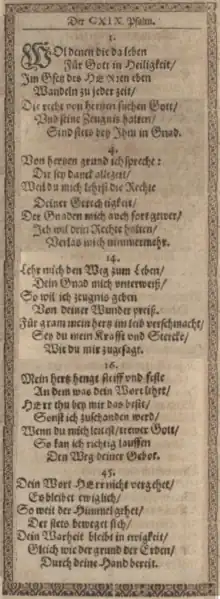 Der CXIX. Psalm.
1.
WOl denen die da leben
Für Gott in Heiligkeit/
Im Gsetz des HERren eben
Wandeln zu jeder zeit/
Die recht von hertzen suchen Gott/
Und seine Zeugnis halten/
Sind stets bey Ihm in Gnad.
4.
Von hertzen grund ich spreche:
Dir sey danck allezeit/
Weil du mich lehrst die Rechte
Deiner Gerechtigkeit/
Der Gnaden mich auch fort gewer/
Ich wil dein Rechte halten/
Verlas mich nimmermehr.
14.
Lehr mich den Weg zum Leben/
Dein Gnad mich unterweiß/
So wil ich zeugnis geben
Von deiner Wunder preiß.
Für gram mein hertz im leib verschmacht/
Sey du mein Krafft und Stercke/
Wie du mir zugesagt.
16.
Mein hertz hengt steiff und feste
An dem was dein Wort lehrt/
HErr thu bey mir das beste/
Sonst ich zuschanden werd/
Wenn du mich leitest/trewer Gott/
So kan ich richtig lauffen
Den Weg deiner Gebot.
45.
Dein Wort HErr nicht vergehet/
Es bleibet ewiglich/
So weit der Himmel gehet/
Der stets beweget sich/
Dein Warheit bleibt in ewigkeit/
Gleich wie der grund der Erden/
Durch deine Hand bereit.